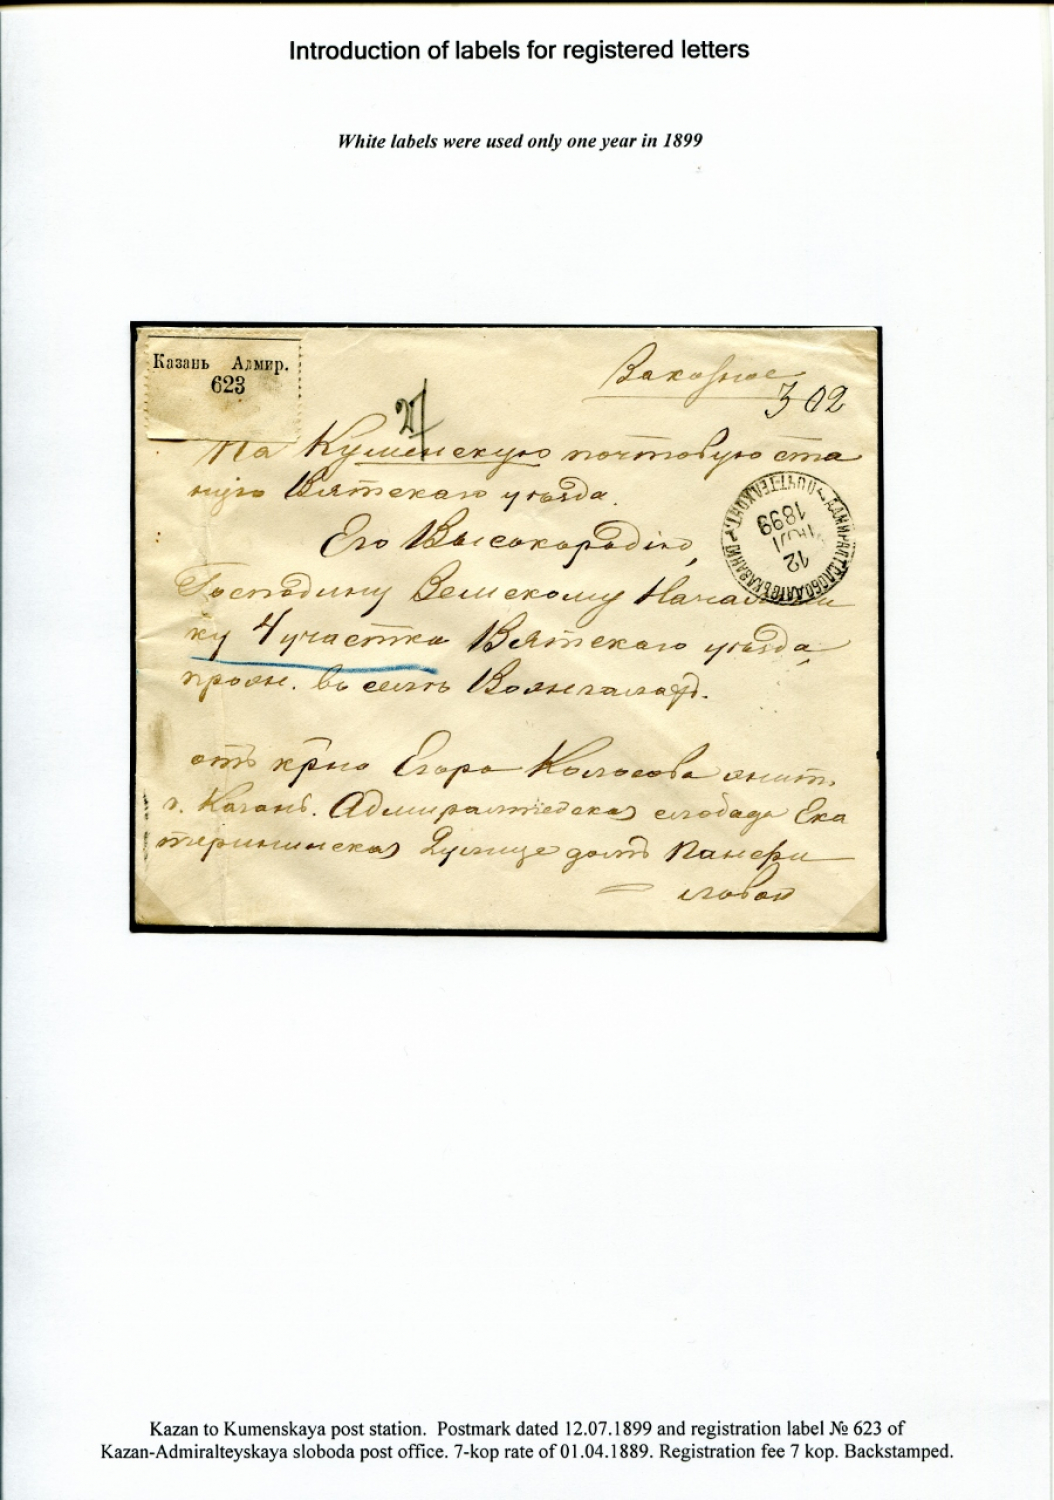 Introduction of labels for registered letters
White labels were used only one year in 1899
Казань Адмир.
623
Заказное
302
27
На Куменскую почтовую ста
нцiю Вятскаго уѣзда.
Его Высокородiю,
Господину Земскому Начальни
ку 4 участка Вятскаго уѣзда,
прож. въ селѣ
12
1899
отъ крно Егора Колосова жит.
г. Казань. Адмиралтейская слобода Ека
терининская улице домъ Панфи
ловой
Kazan to Kumenskaya post station. Postmark dated 12.07.1899 and registration label № 623 of
Kazan-Admiralteyskaya sloboda post office. 7-kop rate of 01.04.1889. Registration fee 7 kop. Backstamped.